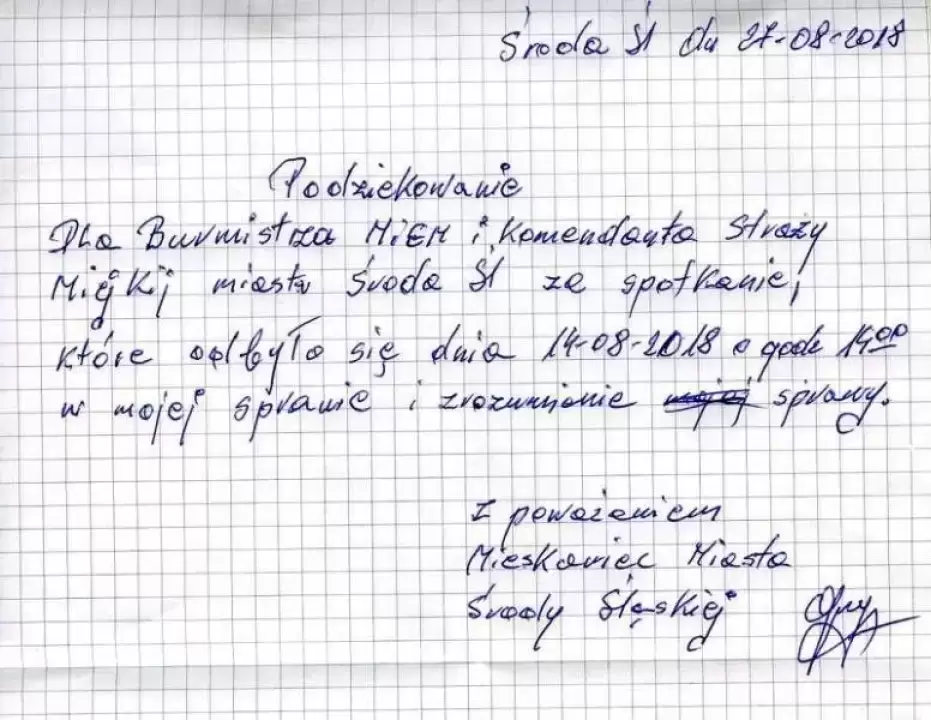 Środa Śl dn 27-08-2018
Podziekowanie
Dla Burmistrza i Komendanta Straży
Miejkij miasta Środa Śl za spotkanie,
które odbyło się dnia 14-08-2018 o godz 14⁰⁰
w mojej sprawie i zrozumienie sprawy.
Z poważaniem
Mieskaniec Miasta
Środy Śląskiej